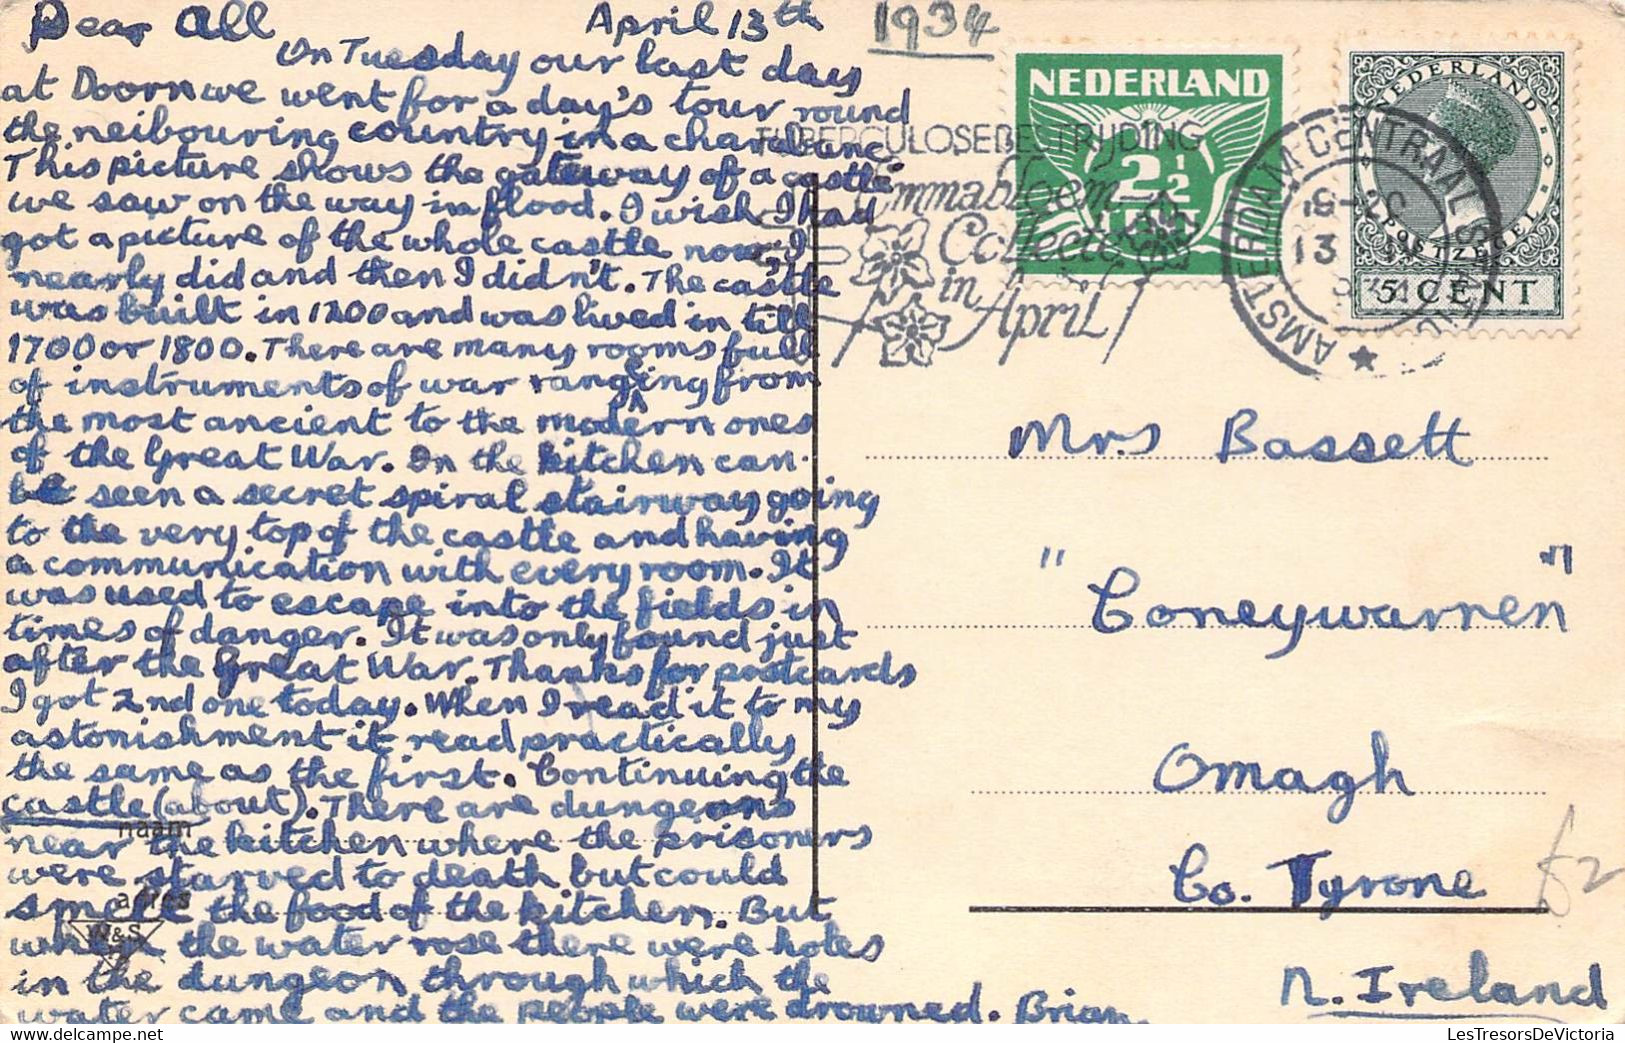 Dear All April 13th 1934
On Tuesday our last day
at Doorn we went for a day's tour round
the neibouring country in a charabanc.
This picture shows the gateway of a castle
we saw on the way in flood. I wish I had
got a picture of the whole castle now I
nearly did and then I didn't. The castle
was built in 1200 and was lived in till
1700 or 1800. There are many rooms full
of instruments of war rangeing from
the most ancient to the modern ones
of the Great War. In the kitchen can
be seen a secret spiral stairway going
to the very top of the castle and having
a communication with every room. It
was used to escape into the fields in
times of danger. It was only found just
after the Great War. Thanks for postcards
I got 2nd one today. When I read it to my
astonishment it read practically
the same as the first. Continuing the
castle (about). There are dungeons
near the kitchen where the prisoners
were starved to death but could
smell the food of the kitchen. But
when the water rose there were holes
in the dungeon through which the
water came and the people were drowned. Brian.
naam
adres
W&S
NEDERLAND
2½
CENT
NEDERLAND
POSTZEGEL
5 CENT
TUBERCULOSEBESTRIJDING
Emmabloem-
Collecte
in April
AMSTERDAM CENTRAAL STATION
13
Mrs Bassett
"Coneywarren"
Omagh
Co. Tyrone
N. Ireland
£2
LesTresorsDeVictoria